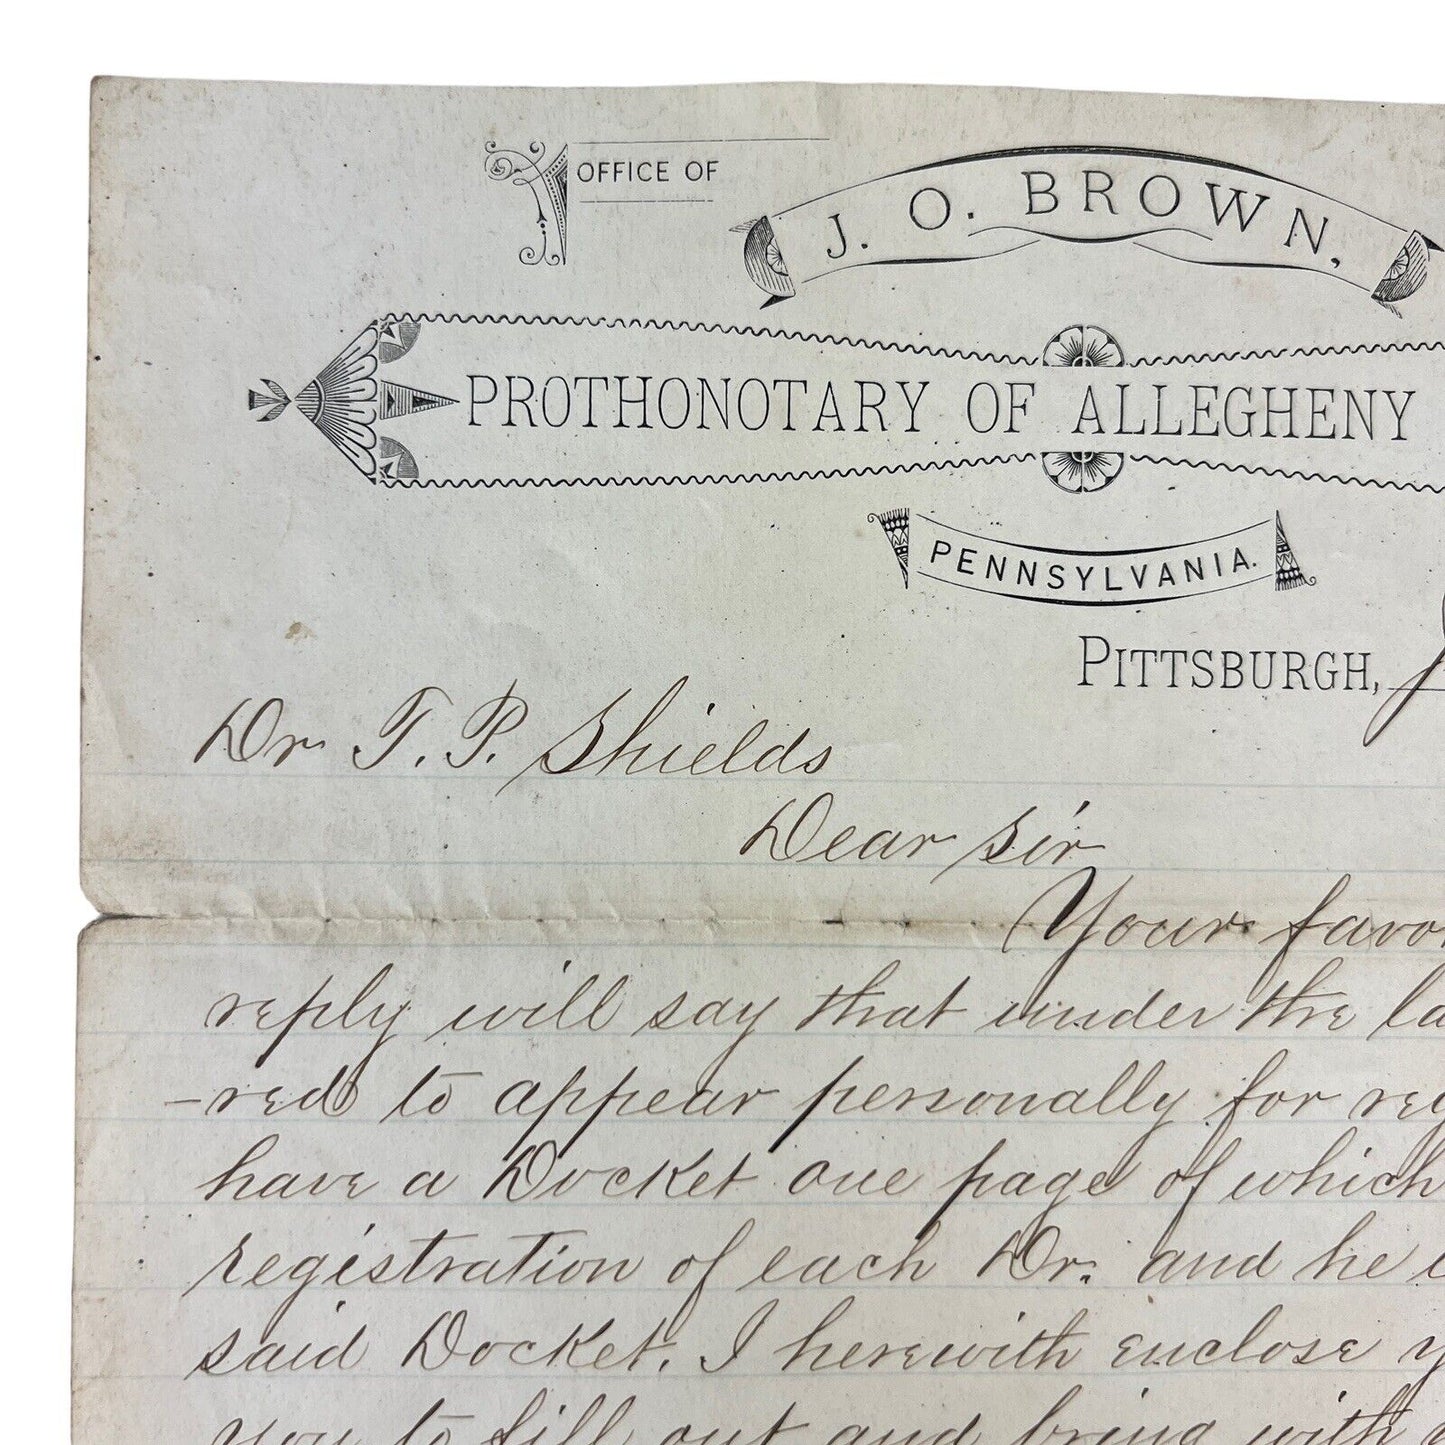 OFFICE OF
J. O. BROWN,
PROTHONOTARY OF ALLEGHENY
PENNSYLVANIA.
PITTSBURGH,
Dr T. P. Shields
Dear Sir
Your favor
reply will say that under the la
-red to appear personally for reg
have a Docket one page of which
registration of each Dr. and he
said Docket. I herewith enclose y
you to fill out and bring with